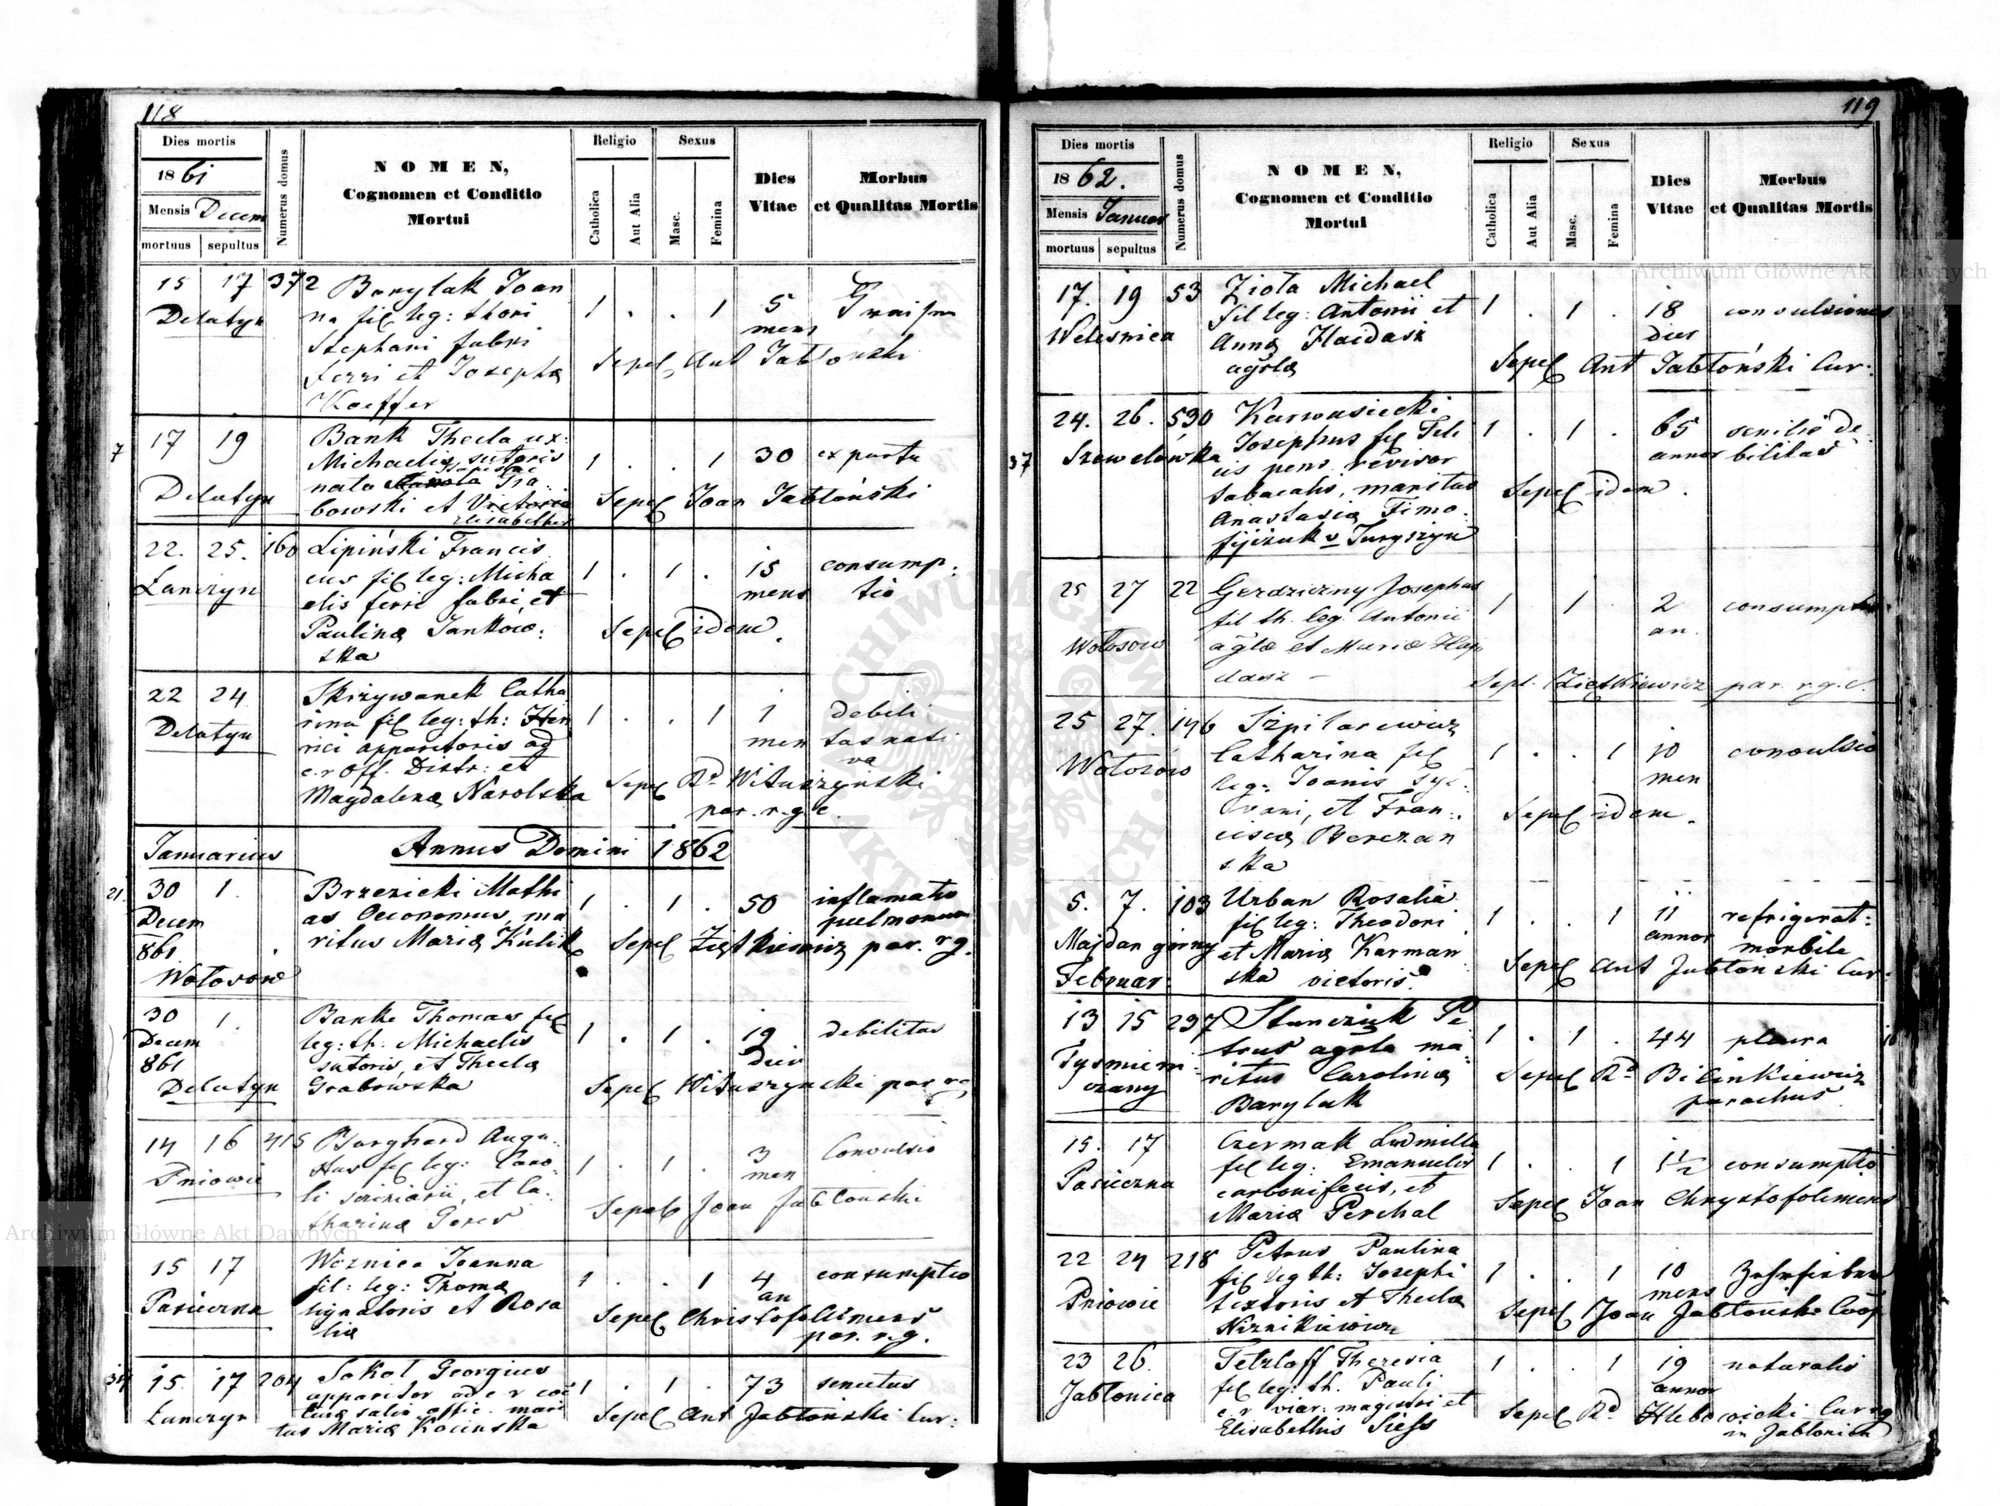 118
Dies mortis
1861
Mensis Decem
mortuus sepultus
Numerus domus
NOMEN,
Cognomen et Conditio
Mortui
Religio
Catholica
Aut Alia
Sexus
Masc.
Femina
Dies
Vitae
Morbus
et Qualitas Mortis
15 17 372 Barylak Joan
na fil leg: thori
Stephani fabri
ferri et Josepha
Koeffer
Delatyn
1 . . 1 5
mens
Sepel Ant Jabłoński
7
17 19
Delatyn
Bank Thecla ux:
Michaelis sutoris
nata Gra
bowski et Victoria
Elisabetha
1 . . 1 30 ex partu
Sepel Joan Jabłoński
22. 25. 160
Lanczyn
Lipiński Francis
cus fil leg: Micha
elis ferri fabri, et
Paulina Jankow:
ska
1 . 1 . 15 consump:
mens tio
Sepel idem.
22 24
Delatyn
Skrzywanek Catha
rina fil leg: th: Hen
rici apparitoris ad
c.r Off. Distr: et
Magdalena Narolska
1 . . 1 1 debili
men tas nati
va
Sepel Rd Wituszyński
par. r.g.c.
Januarius Annus Domini 1862
21.
30 1.
Decem
861.
Wołosów
Brzezicki Mathi
as Oeconomus, ma
ritus Maria Kulik
1 . 1 . 50 inflamatio
pulmonum
Sepel Ziętkiewicz par. r.g.
30 1.
Decem
861
Delatyn
Banke Thomas fil
leg: th. Michaelis
sutoris, et Thecla
Grabowska
1 . 1 . 19 debilitas
dies
Sepel Wituszyncki par r.g.
14 16 415
Pniowie
Burghard Augu
stus fil leg: Caro
li et Ca
tharina Peres
1 . 1 . 3 Convulsio
men
Sepel Joan Jabłonski
15 17
Pasieczna
Woznica Joanna
fil: leg: Thoma
lignatoris et Rosa
lia
1 . . 1 4 consumptio
an
Sepel Christofolimens
par. r.g.
15. 17 204
Lanczyn
Sokol Georgius
apparitor ad c r
salis offic. mari
tus Maria Kocinska
1 . 1 . 73 senectus
Sepel Ant Jabłoński Cur:
119
Dies mortis
1862.
Mensis Januar
mortuus sepultus
Numerus domus
NOMEN,
Cognomen et Conditio
Mortui
Religio
Catholica
Aut Alia
Sexus
Masc.
Femina
Dies
Vitae
Morbus
et Qualitas Mortis
17. 19 53
Welesnica
Ziota Michael
fil leg: Antonii et
Anna Haidasz
agola
1 . 1 . 18 convulsiones
dies
Sepel Ant Jabłoński Cur:
37
24. 26. 530
Szewelówka
Karwasiecki
Josephus fil Feli
cis pens. revisor
tabacalis, maritus
Anastasia Timo
fijczuk v Juryszyn
1 . 1 . 65 senilis de
annor bilitas
Sepel idem.
25 27 22
Wołosow
Gerdziczny Josephus
fil th. leg. Antonii
agla et Maria Haj
dasz
1 1 2 consumptio
an.
Sepl. Ziętkiewicz par. r.g.c.
25 27. 146
Wołosów
Szpilarewicz
Catharina fil
leg: Joanis
et Fran
cisca Berezan
ska
1 . . 1 10 convulsio
men
Sepel idem.
5. 7. 103
Majdan górny
Urban Rosalia
fil leg: Theodori
et Maria Karman
ska victoris
1 . . 1 11 refrigerat:
annor morbile
Sepel Ant Jabłonski Cur:
Februar:
13 15 237
Tysmieni
czany
Stanczuk Pe
trus agola ma
ritus Carolina
Barylak
1 . 1 . 44 pleura
Sepel Rd Bilinkiewicz
parachus.
15. 17
Pasieczna
Czermak Ludmilla
fil leg: Emanuelis
carbonificis, et
Maria Perchal
1 . . 1 1½ consumptio
Sepel Joan Chrystofolimens
22 24 218
Pniowie
Petrus Paulina
fil leg th: Josephi
textoris et Thecla
Niznikiewicz
1 . . 1 10
mens
Sepel Joan Jabłoński Coop
23 26.
Jabłonica
Tetzloff Theresia
fil leg: th. Pauli
c. r viar: magistri et
Elisabethis Siess
1 . . 1 19 naturalis
annor
Sepel Rd Hlebowicki Cur rg
in Jabłonica
Archiwum Główne Akt Dawnych
Archiwum Główne Akt Dawnych
ARCHIWUM GŁÓWNE AKT DAWNYCH